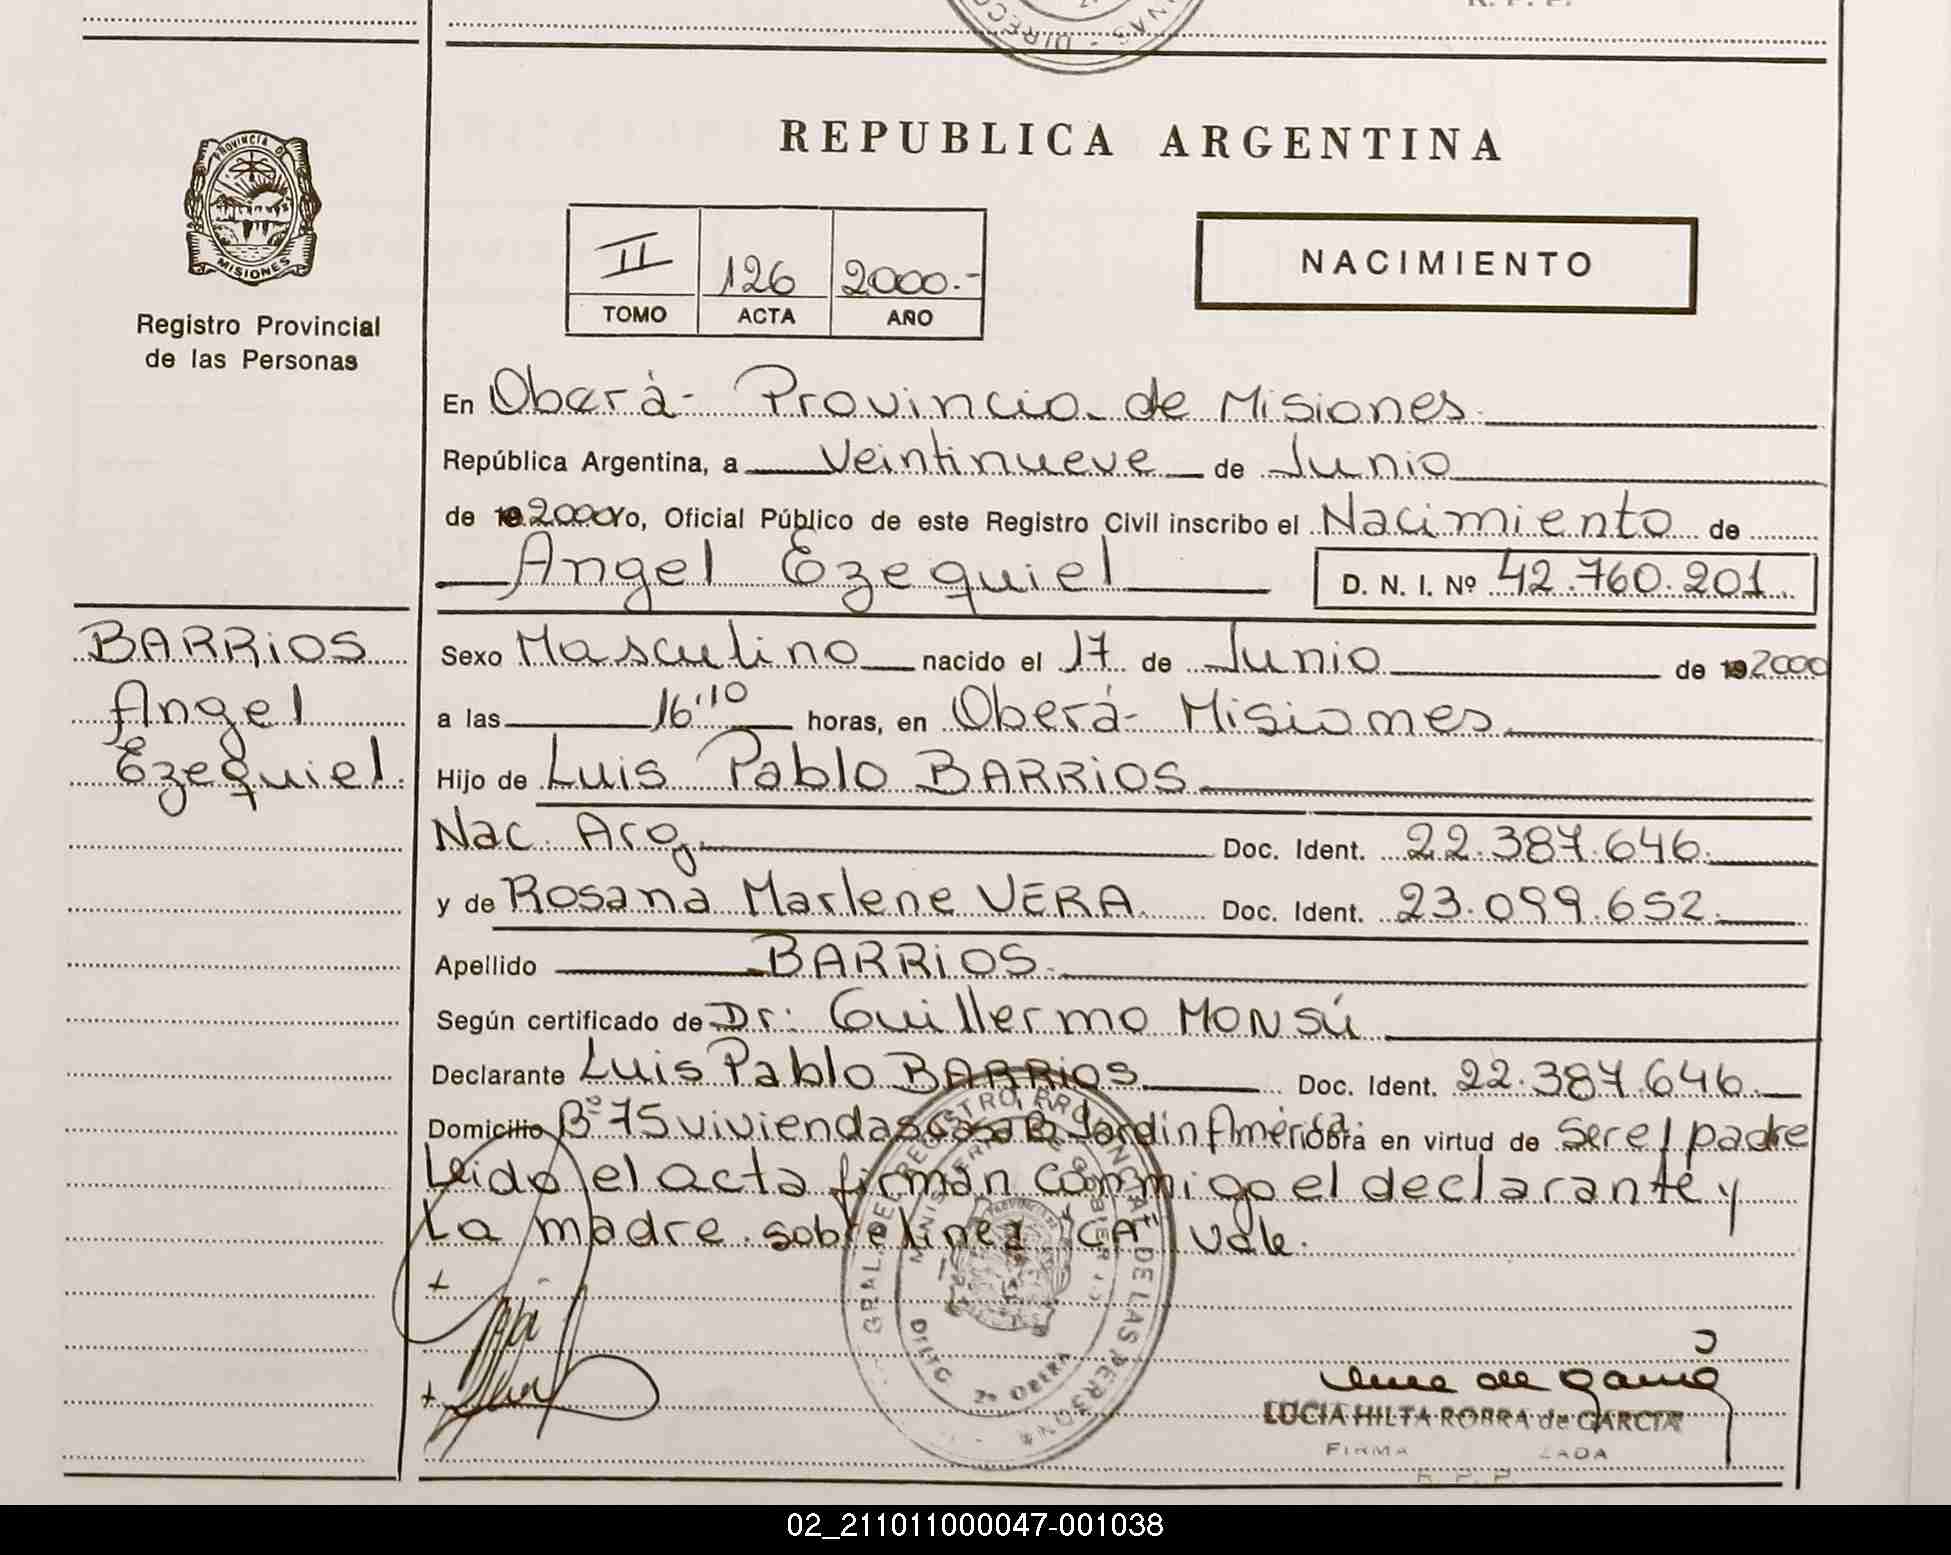 REPUBLICA ARGENTINA
PROVINCIA DE
MISIONES
Registro Provincial
de las Personas
II 126 2000.-
TOMO ACTA AÑO
NACIMIENTO
En Oberá - Provincia de Misiones
República Argentina, a Veintinueve de Junio
de 19 2000 Yo, Oficial Público de este Registro Civil inscribo el Nacimiento de
Angel Ezequiel D. N. I. Nº 42.760.201.
BARRIOS
Angel
Ezequiel.
Sexo Masculino nacido el 17 de Junio de 19 2000
a las 16'10 horas, en Oberá - Misiones
Hijo de Luis Pablo BARRIOS
Nac. Arg. Doc. Ident. 22.387.646.
y de Rosana Marlene VERA Doc. Ident. 23.099.652.
Apellido BARRIOS.
Según certificado de Dr: Guillermo MONSÚ
Declarante Luis Pablo BARRIOS Doc. Ident. 22.387.646.
Domicilio Bº 75 viviendas Casa Jardin América Obra en virtud de Ser el padre
Leido el acta firman conmigo el declarante y
La madre. sobrelinea "CA" Vale.
REGISTRO PROVINCIAL DE LAS PERSONAS
LUCIA HILTA RORRA de GARCIA
02_211011000047-001038